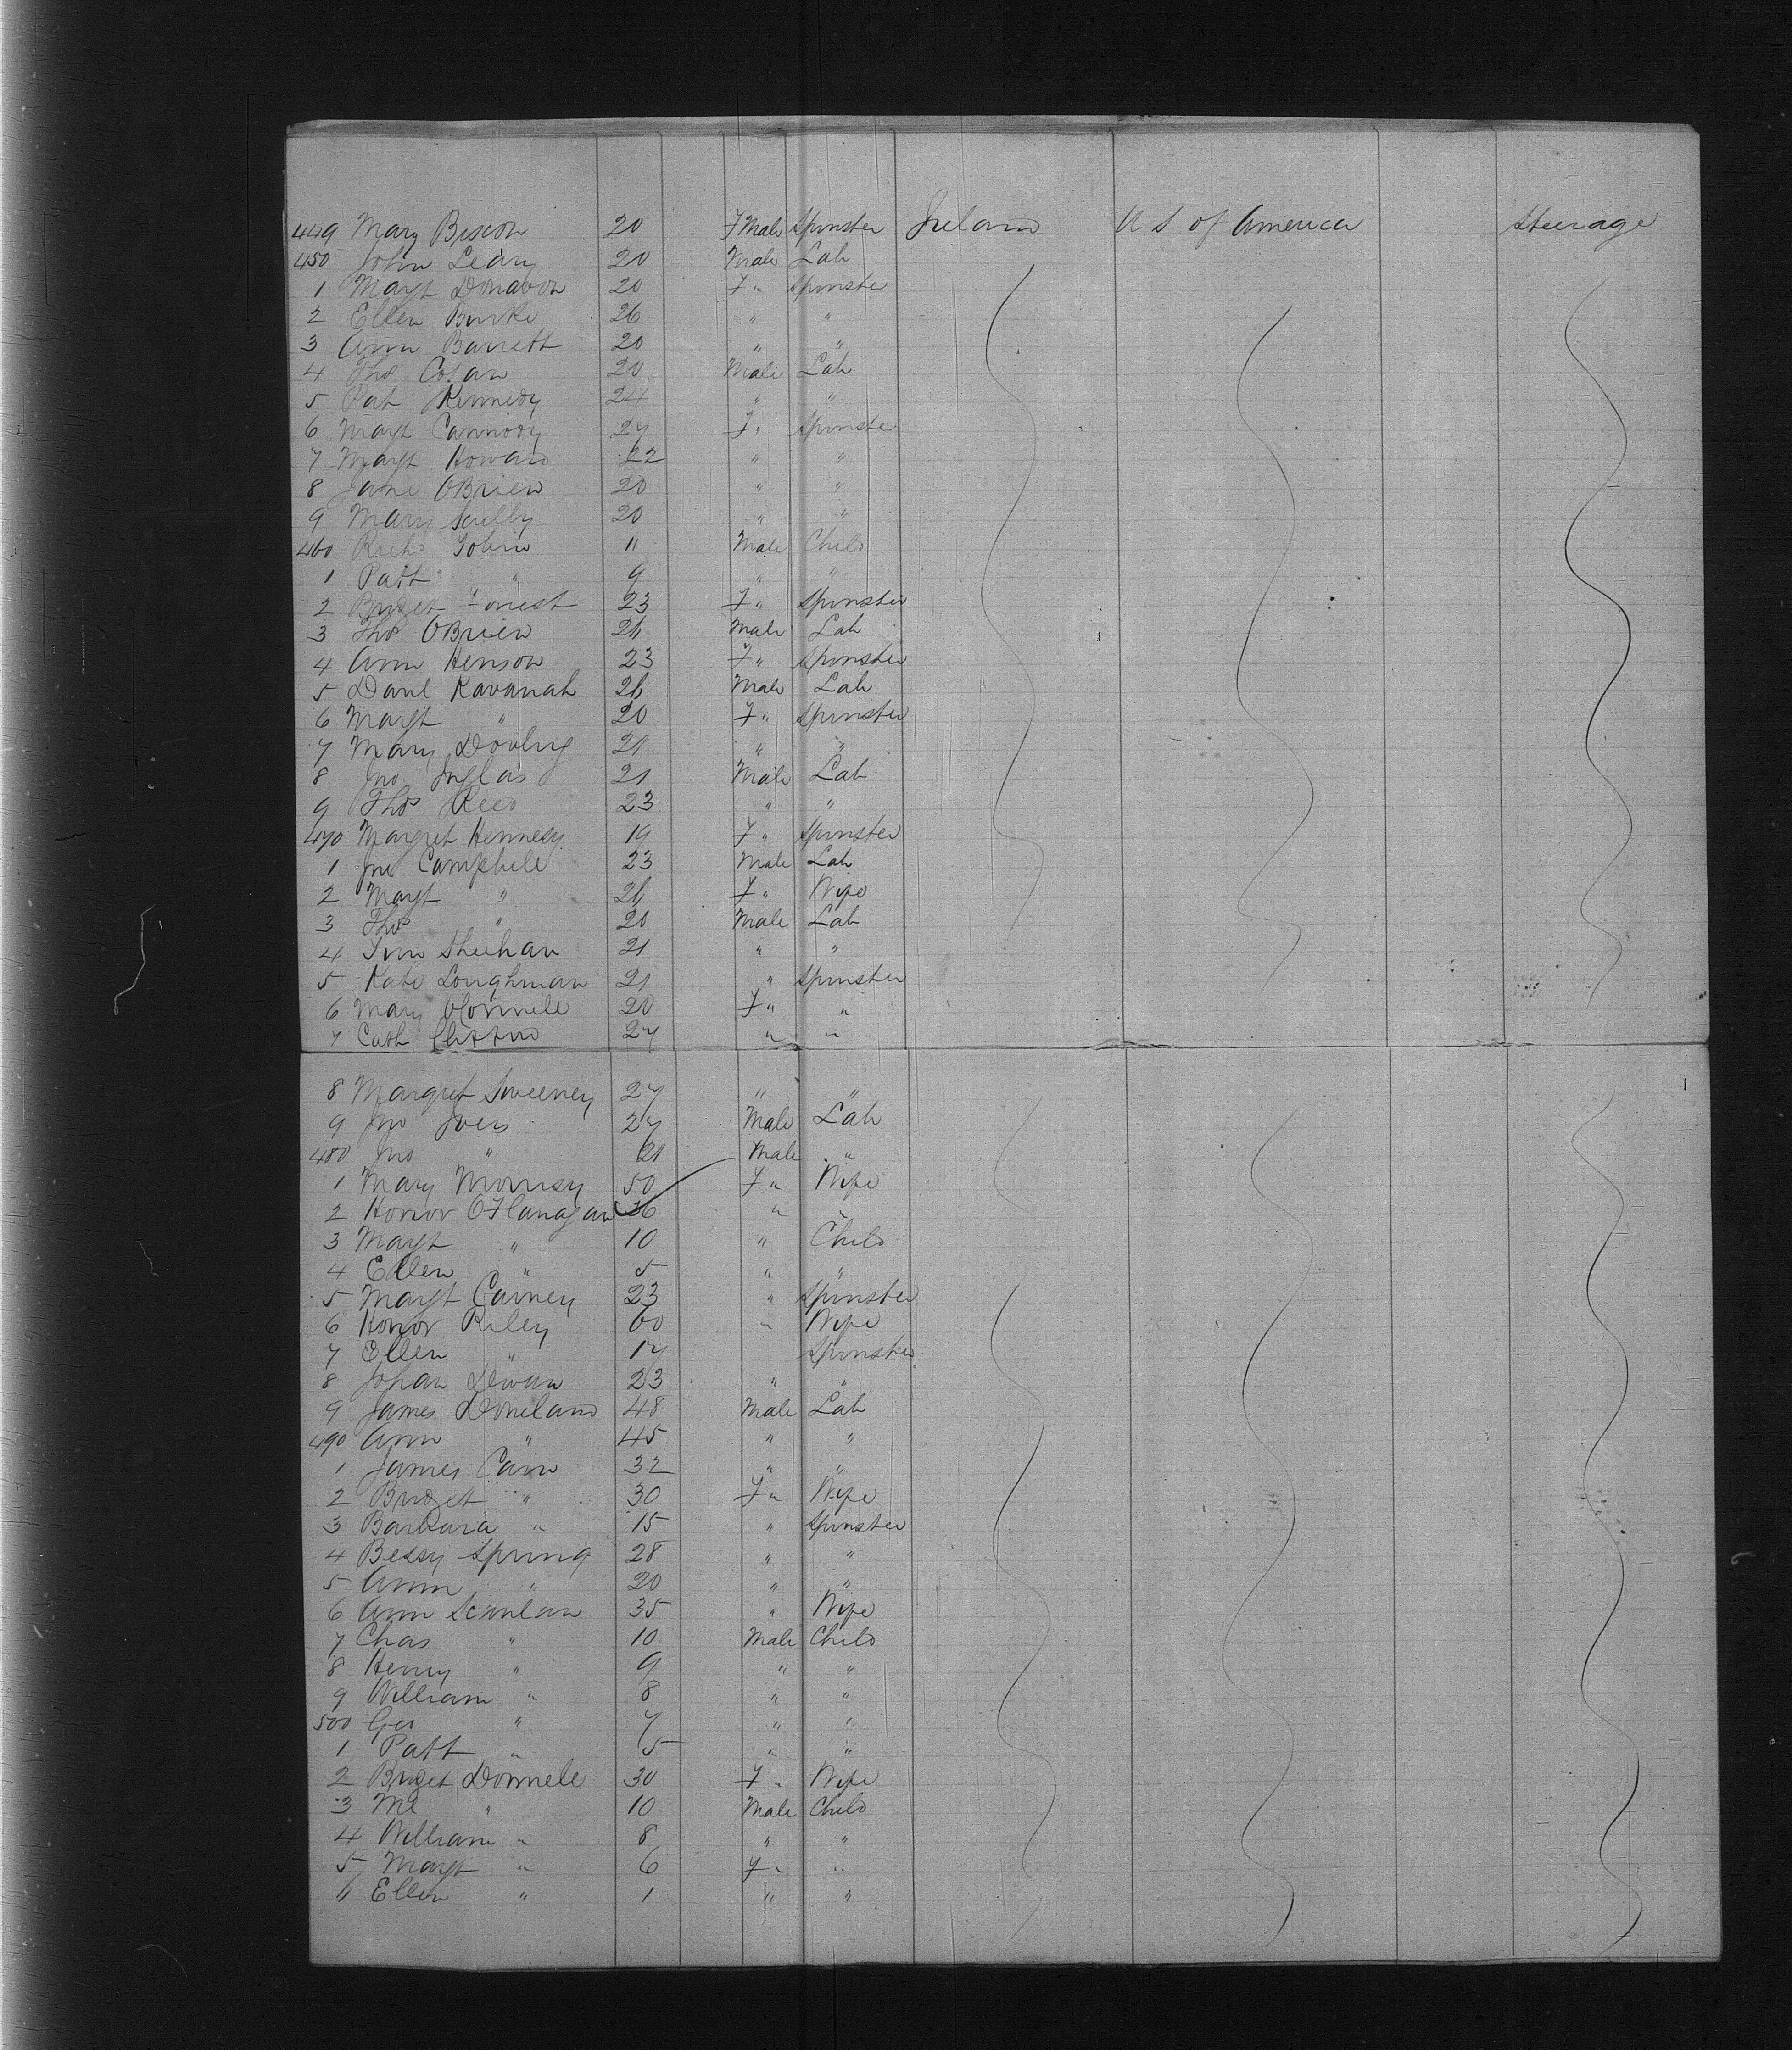 449 Mary 20 F Male Spinster Ireland U S of America Steerage
450 John Leary 20 Male Lab
1 Margt Donavon 20 F " Spinster
2 Ellen Burke 26 " "
3 Ann Barrett 20 " "
4 Thos 20 Male Lab
5 Pat Kennedy 24 " "
6 Margt 27 F " Spinster
7 Margt Howard 22 " "
8 Jane OBrien 20 " "
9 Mary Scully 20 " "
460 Richd Tobin 11 Male Child
1 Patt " 9 " "
2 Bridget 23 F " Spinster
3 Thos OBrien 26 Male Lab
4 Ann Henson 23 F " Spinster
5 Danl Kavanah 26 Male Lab
6 Margt " 20 F " Spinster
7 Mary 21 " "
8 Jno 21 Male Lab
9 Thos Reed 23 " "
470 Margret Hennesy 19 F " Spinster
1 Jno Campbell 23 Male Lab
2 Margt " 26 F " Wife
3 Thos " 20 Male Lab
4 Tim Sheehan 21 " "
5 Kate Loughman 21 " Spinster
6 Mary OConnell 20 F " "
7 Cath 27 " "
8 Margret Sweeney 27 " "
9 Jno 27 Male Lab
480 Jno " 21 Male "
1 Mary Morrisy 50 F " Wife
2 Honor OFlanagan 36 " "
3 Margt " 10 " Child
4 Ellen " 5 " "
5 Margt Carney 23 " Spinster
6 Honor Riley 60 " Wife
7 Ellen " 17 Spinster
8 23 " "
9 James Doneland 48 Male Lab
490 Ann " 45 " "
1 James Cain 32 " "
2 Bridget " 30 F " Wife
3 Barbara " 15 " Spinster
4 Bessy Spring 28 " "
5 Ann " 20 " "
6 Ann Scanlan 35 " Wife
7 Chas " 10 Male Child
8 Henry " 9 " "
9 William " 8 " "
500 Geo " 7 " "
1 Patt " 5 " "
2 Bridget Donnell 30 F " Wife
3 Ml " 10 Male Child
4 William " 8 " "
5 Margt " 6 F " "
6 Ellen " 1 " "